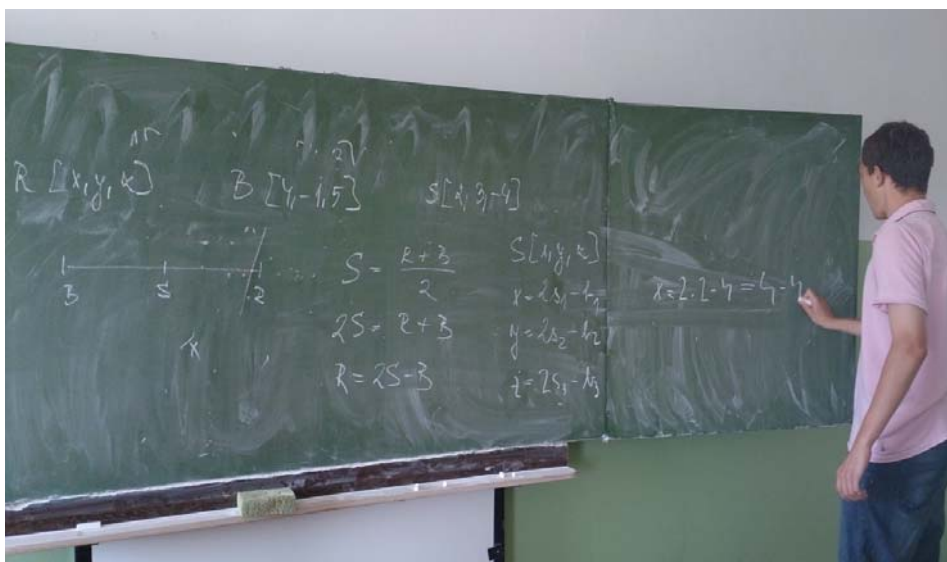 R [x, y, z]
B [4, -1, 5]
S [2, 3, -4]
B S R
S = R + B / 2
2S = R + B
R = 2S - B
S [x, y, z]
x = 2s₁ - b₁
y = 2s₂ - b₂
z = 2s₃ - b₃
x = 2 . 2 - 4 = 4 - 4